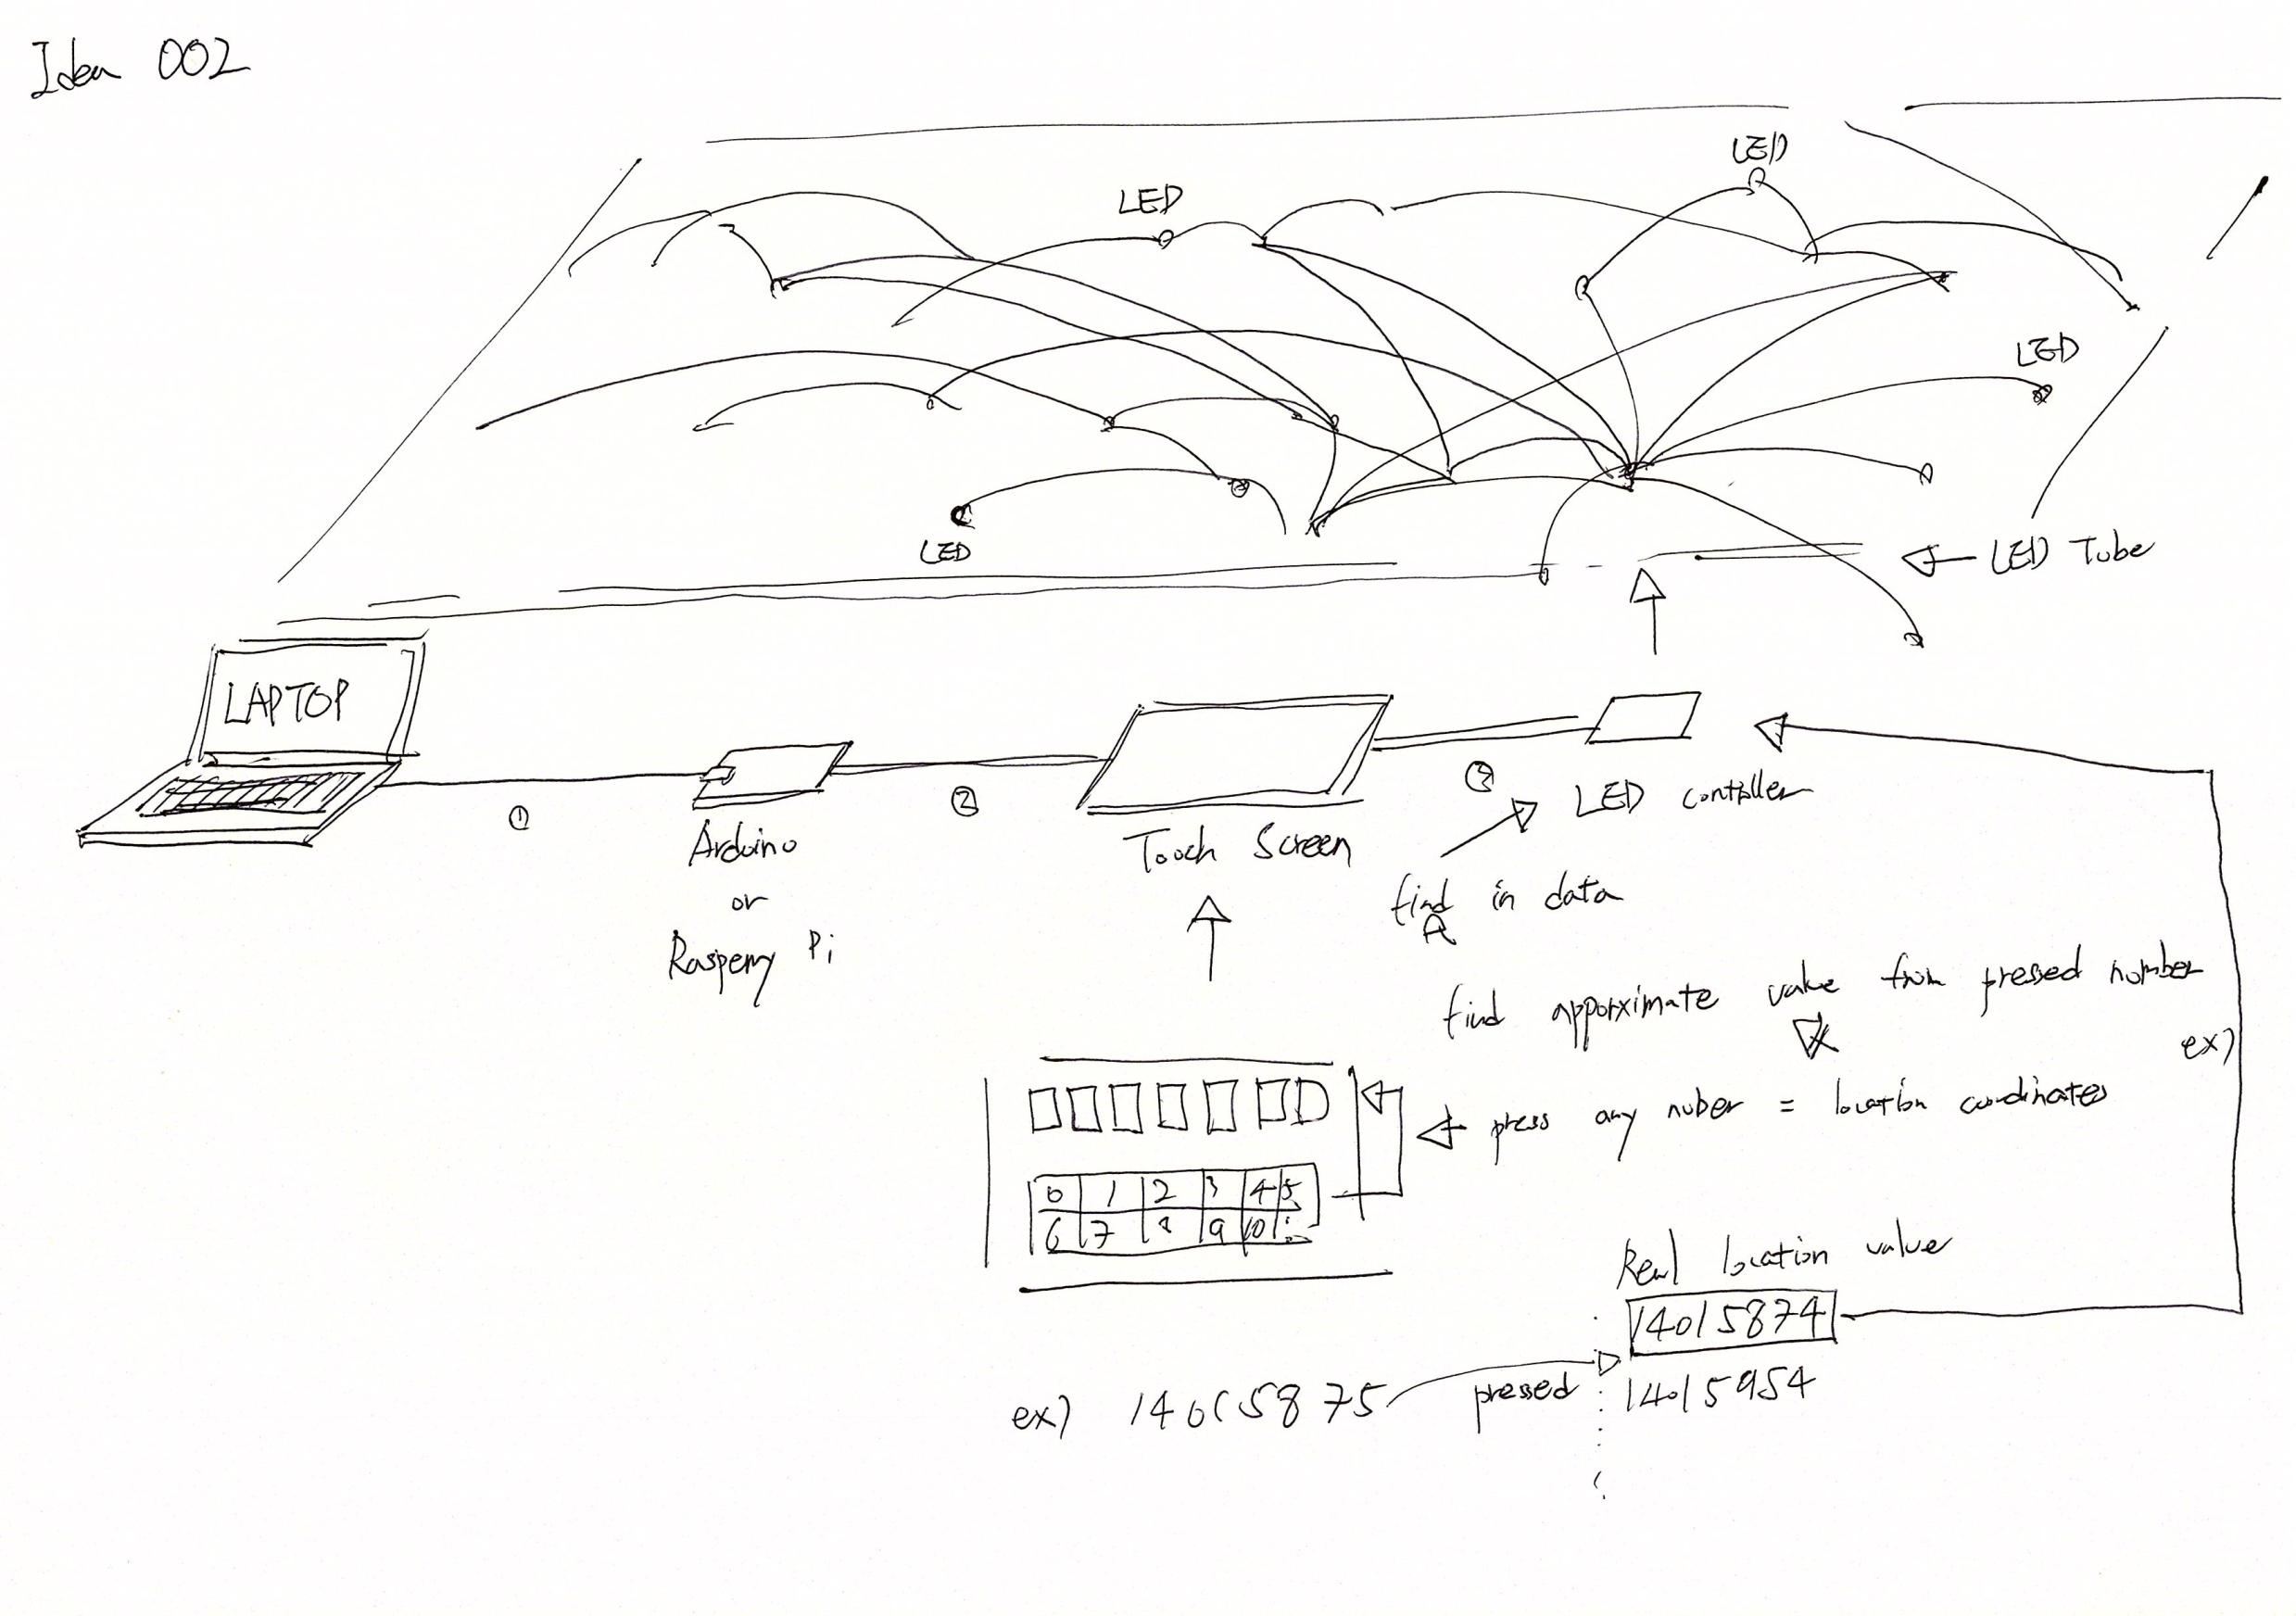 Idea 002
LED
LED
LED
LED
LED Tube
LAPTOP
① ② ③
Arduino
or
Rasperry Pi
Touch Screen
LED contoller
find in data
find apporximate value from pressed number
ex)
press any nuber = location coordinates
0 1 2 3 4 5
6 7 8 9 10 :
Real location value
14015874
14015954
ex) 14015875 pressed